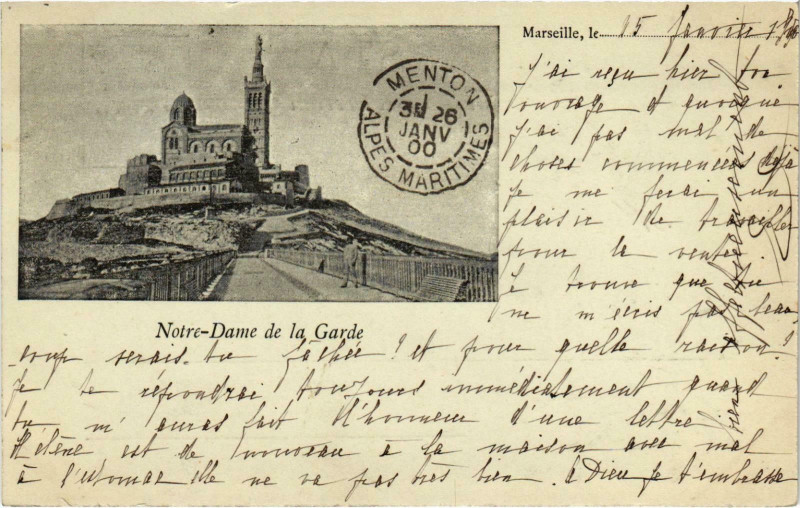 Marseille, le 15 Janvier
MENTON
3E 26
JANV
00
ALPES MARITIMES
J'ai reçu hier ton
ouvrage et quoique
j'ai pas mal de
choses commencées déjà
je me ferai un
plaisir de travailler
pour la vente.
Je trouve que tu
ne m'écris pas beau
Notre-Dame de la Garde
-coup serais-tu fâchée? et pour quelle raison?
Je te répondrai toujours immédiatement quand
tu m'auras fait l'honneur d'une lettre
Hélène est de nouveau à la maison avec mal
à l'estomac elle ne va pas très bien. Dieu je t'embrasse
affectueusement